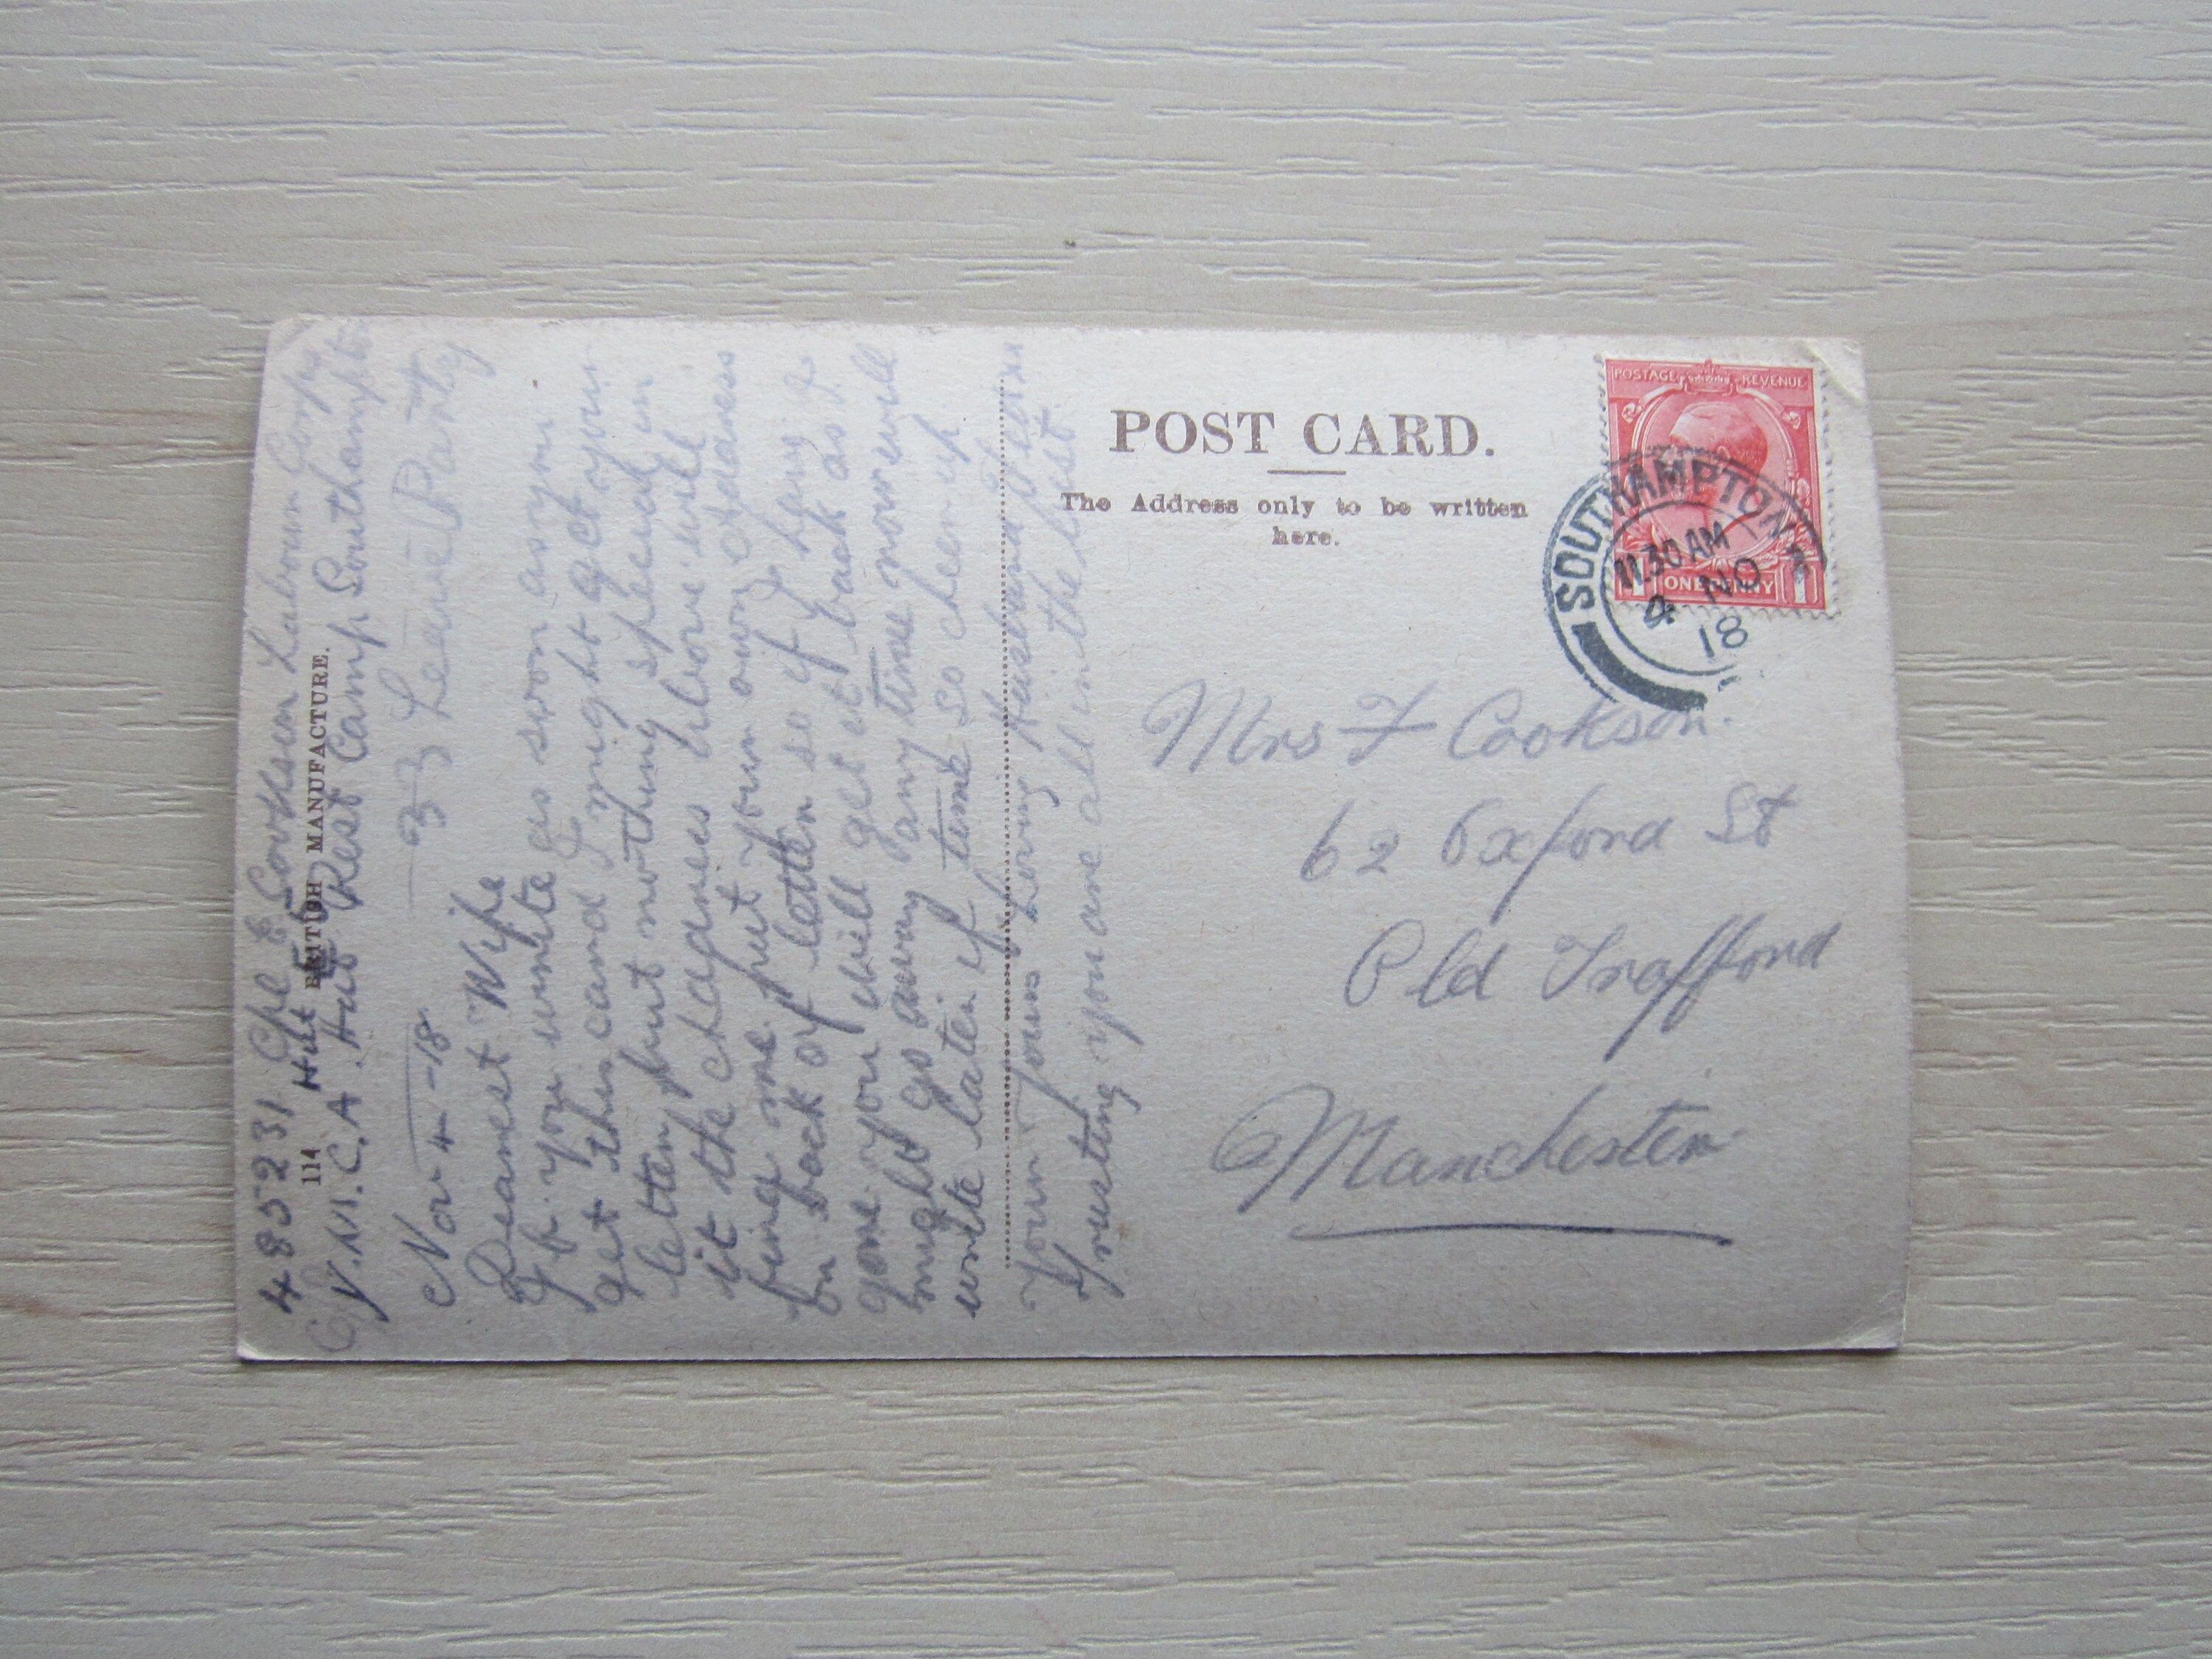 485231 Cpl E Cookson Labour Corps
Hut 5
Y.M.C.A. Hut Rest Camp Southampton
Leave Party
Nov 4-18
Dearest Wife
you write as soon as you
get this card I might get your
letter but nothing special in
it the chances above will
find me put your own address
on back of letter so if I have
gone you will get it back as I
might go away any time now will
write later if time so cheer up
Your Loving Husband
Trusting you are all in the best
114 BRITISH MANUFACTURE.
POST CARD.
The Address only to be written
here.
POSTAGE REVENUE
ONE PENNY
1 1
SOUTHAMPTON
11.30 AM
4 NO
18
Mrs F Cookson
62 Oxford St
Old Trafford
Manchester